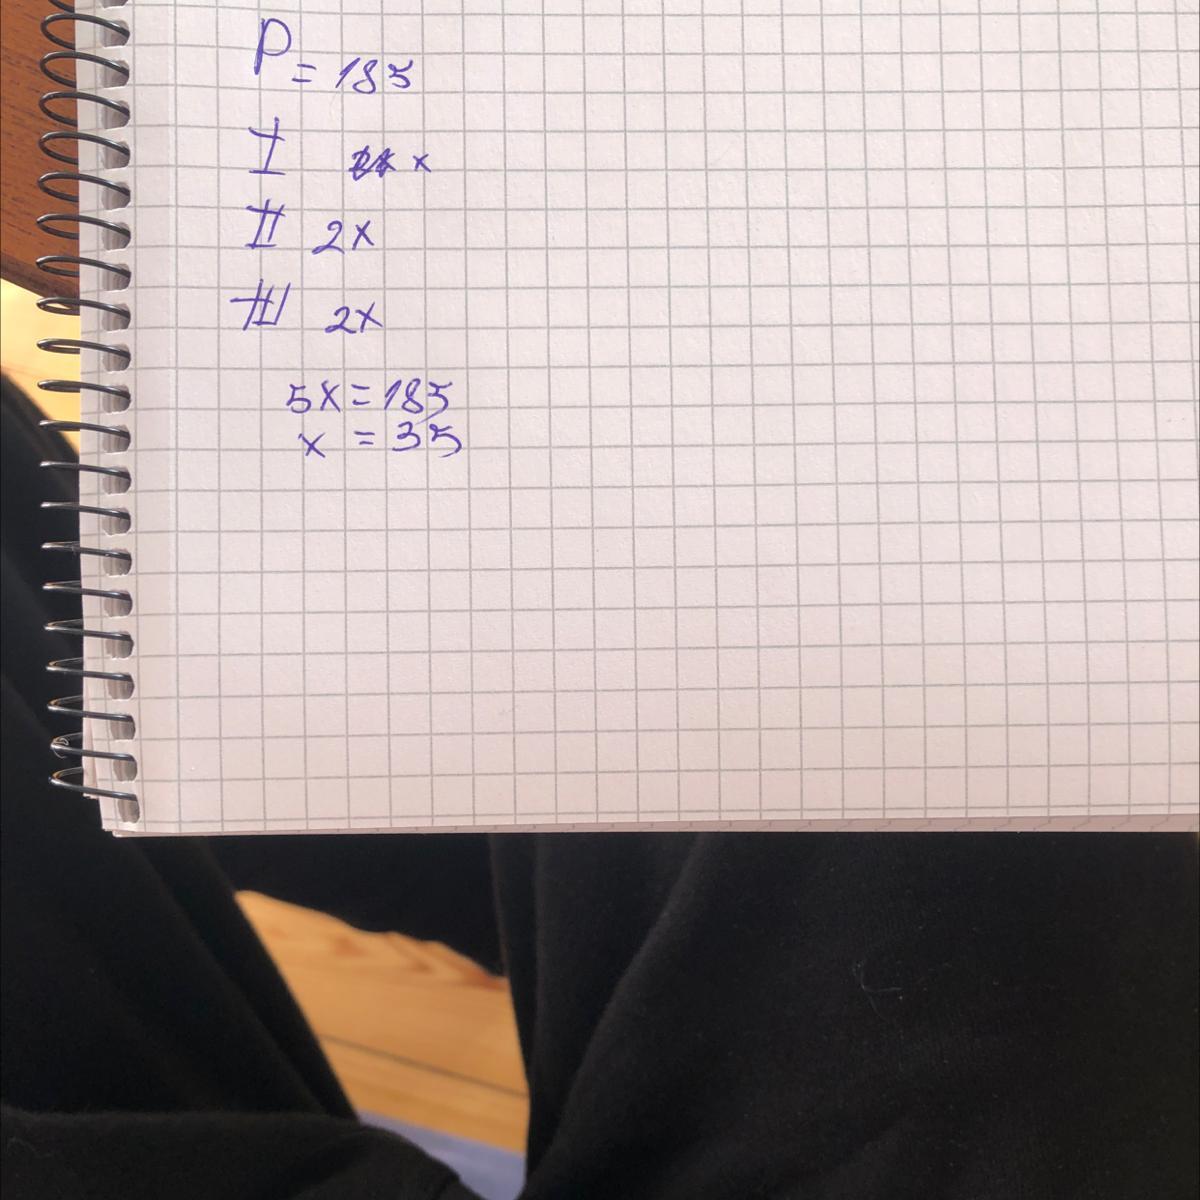 P = 185
I x
II 2x
III 2x
5x = 185
x = 35